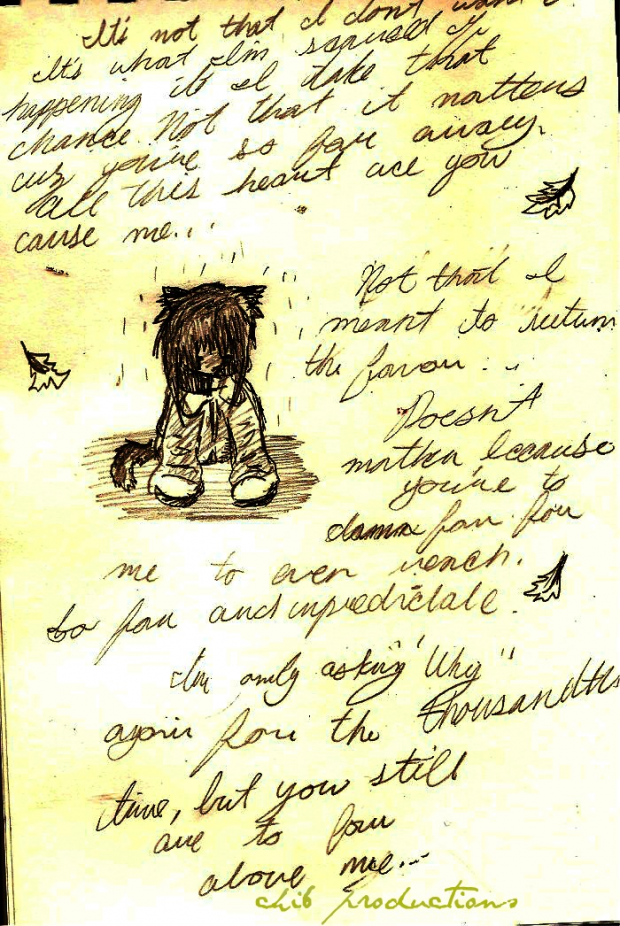 It's not that I don't want
It's what I'm scared of
happening if I take that
chance. Not that it matters
cuz you're so far away.
All this heart ace you
cause me...
Not that I
meant to return
the favor...
Doesn't
matter because
you're to
damn far for
me to even reach.
So far and unpredictale.
I'm only asking "Why"
again for the thousandths
time, but you still
are to far
above me...
chib productions